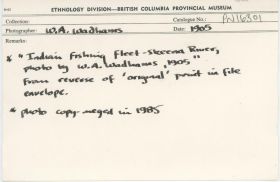 ETHNOLOGY DIVISION—BRITISH COLUMBIA PROVINCIAL MUSEUM
Collection: Catalogue No.: PN16301
Photographer: W.A. Wadhams Date: 1905
Remarks:
* "Indian Fishing Fleet - Skeena River,
photo by W.A. Wadhams, 1905"
From reverse of 'original' print in file
envelope.
* photo copy-neged in 1985